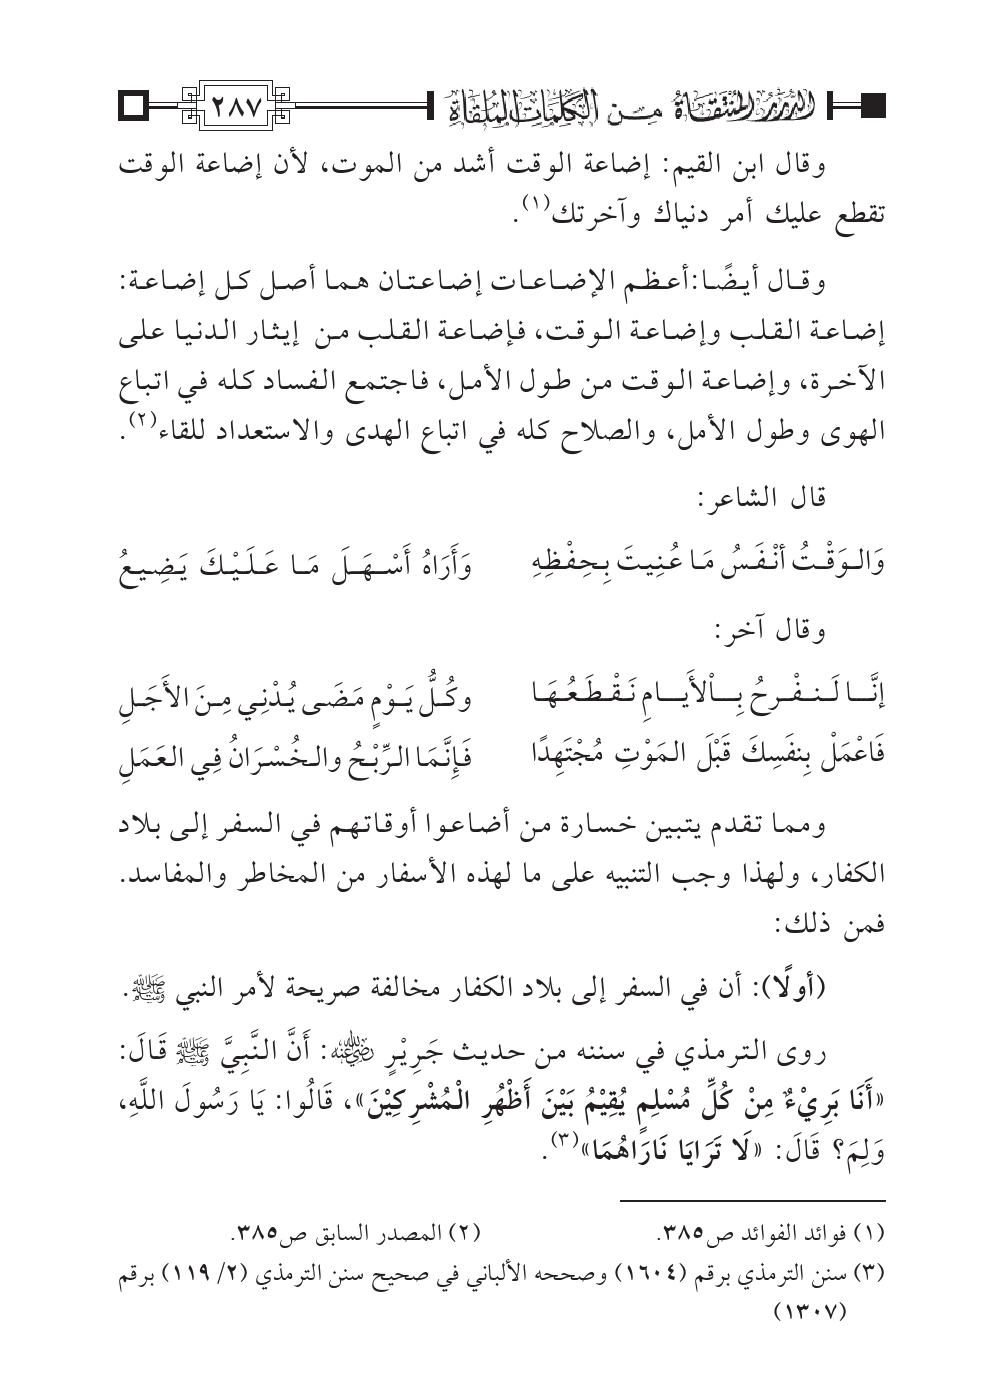 الدُّرَرُ المُنْتَقَاةُ مِـن الكَلِمَاتِ المُلقَاةِ ٢٨٧
وقال ابن القيم: إضاعة الوقت أشد من الموت، لأن إضاعة الوقت
تقطع عليك أمر دنياك وآخرتك(١).
وقـال أيـضًـا:أعـظـم الإضـاعـات إضـاعـتـان هـمـا أصـل كـل إضـاعـة:
إضاعة القلب وإضاعة الوقت، فإضاعة القلب من إيثار الدنيا على
الآخرة، وإضاعة الوقت من طول الأمل، فاجتمع الفساد كله في اتباع
الهوى وطول الأمل، والصلاح كله في اتباع الهدى والاستعداد للقاء(٢).
قال الشاعر:
وَالـوَقْـتُ أنْـفَـسُ مَـا عُـنِـيتَ بِـحِفْظِهِ وَأَرَاهُ أَسْـهَـلَ مَـا عَـلَـيْـكَ يَـضِـيـعُ
وقال آخر:
إنَّـــا لَـنـفْـرحُ بِـــاْلأَيـــامِ نَـقْـطَـعُـهَـا وكُـلُّ يَـوْمٍ مَـضَـى يُـدْنِـي مِـنَ الأَجَـلِ
فَاعْمَلْ بِنفَسِكَ قَبْلَ المَوْتِ مُجْتَهِدًا فَـإِنَّـمَـا الـرِّبْـحُ والـخُـسْـرَانُ فِـي العَمَلِ
ومما تقدم يتبين خسارة من أضاعوا أوقاتهم في السفر إلى بلاد
الكفار، ولهذا وجب التنبيه على ما لهذه الأسفار من المخاطر والمفاسد.
فمن ذلك:
(أولًا): أن في السفر إلى بلاد الكفار مخالفة صريحة لأمر النبي ﷺ.
روى الترمذي في سننه من حديث جَرِيْرٍ رضي الله عنه: أَنَّ النَّبِيَّ ﷺ قَالَ:
«أَنَا بَرِيْءٌ مِنْ كُلِّ مُسْلِمٍ يُقِيْمُ بَيْنَ أَظْهُرِ الْمُشْرِكِيْنَ»، قَالُوا: يَا رَسُولَ اللَّهِ،
وَلِمَ؟ قَالَ: «لَا تَرَايَا نَارَاهُمَا»(٣).
(١) فوائد الفوائد ص٣٨٥. (٢) المصدر السابق ص٣٨٥.
(٣) سنن الترمذي برقم (١٦٠٤) وصححه الألباني في صحيح سنن الترمذي (٢/ ١١٩) برقم
(١٣٠٧)